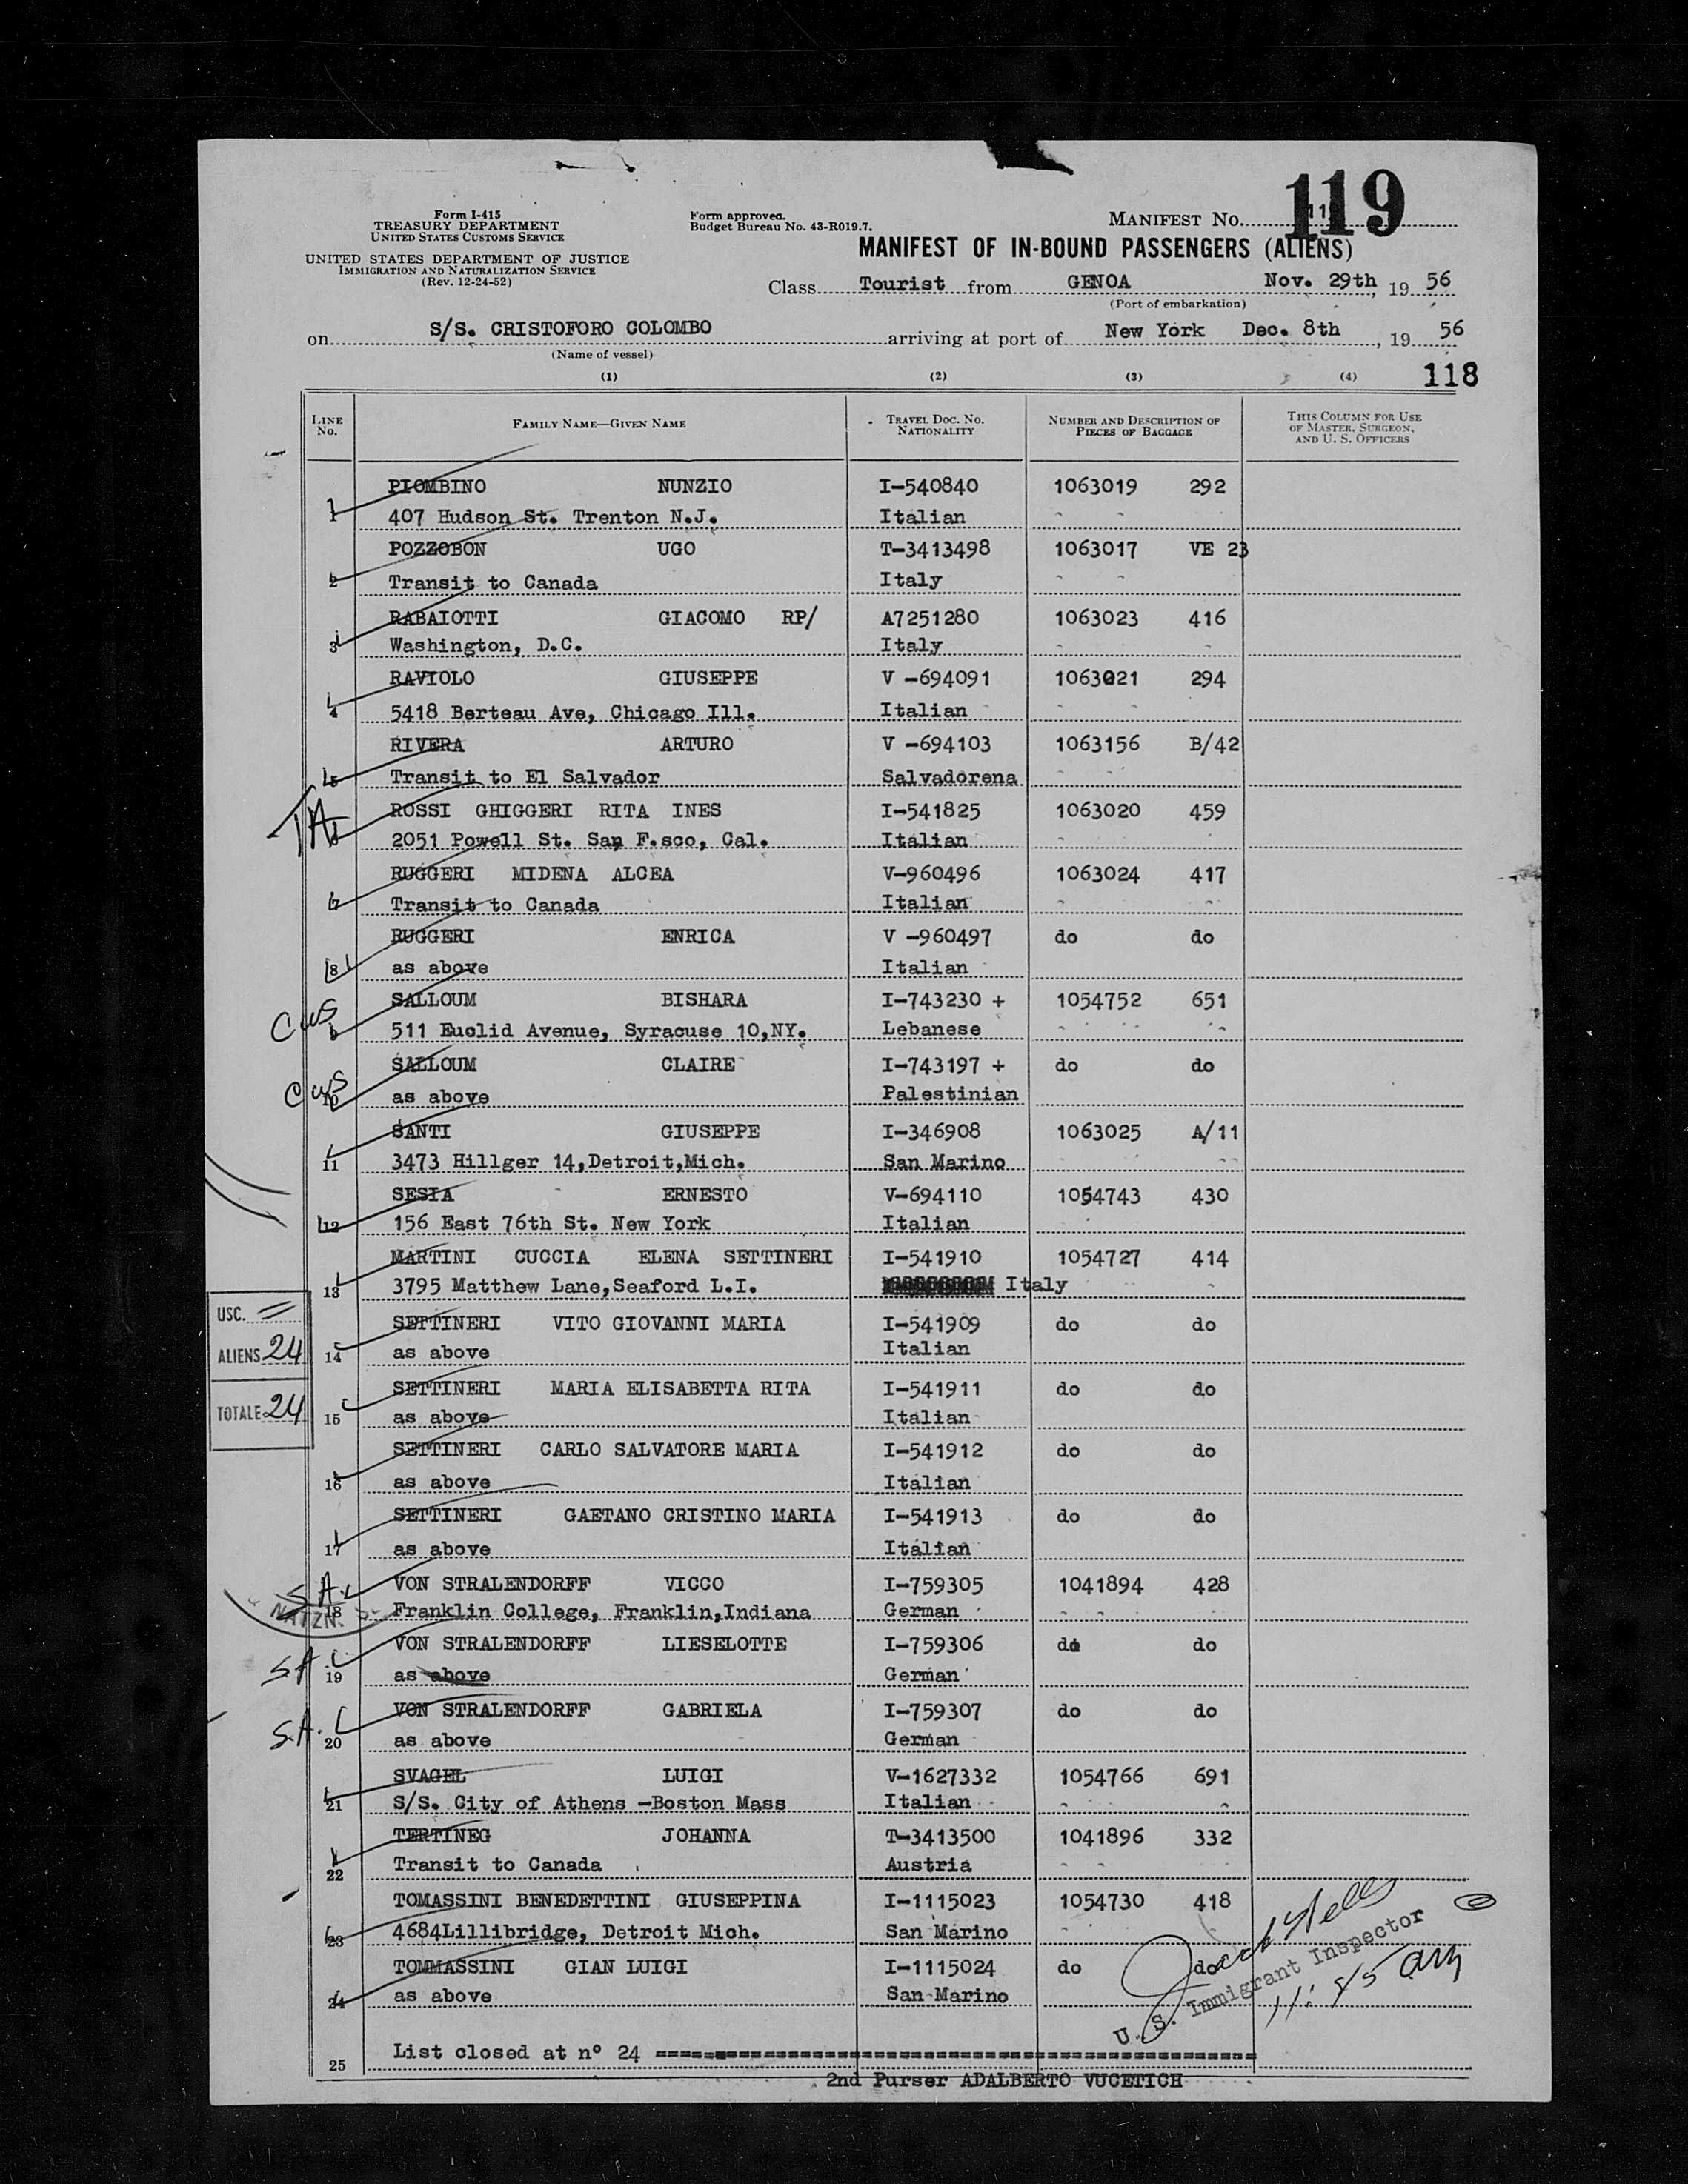 Form I-415
TREASURY DEPARTMENT
UNITED STATES CUSTOMS SERVICE
UNITED STATES DEPARTMENT OF JUSTICE
IMMIGRATION AND NATURALIZATION SERVICE
(Rev. 12-24-52)
Form approved.
Budget Bureau No. 43-R019.7.
MANIFEST NO. 119
MANIFEST OF IN-BOUND PASSENGERS (ALIENS)
Class Tourist from GENOA Nov. 29th, 19 56
(Port of embarkation)
on S/S. CRISTOFORO COLOMBO arriving at port of New York Dec. 8th, 19 56
(Name of vessel)
(1) (2) (3) (4) 118
LINE No. FAMILY NAME—GIVEN NAME TRAVEL DOC. NO. NATIONALITY NUMBER AND DESCRIPTION OF PIECES OF BAGGAGE THIS COLUMN FOR USE OF MASTER, SURGEON, AND U. S. OFFICERS
PIOMBINO NUNZIO I-540840 1063019 292
1 407 Hudson St. Trenton N.J. Italian
POZZOBON UGO T-3413498 1063017 VE 23
2 Transit to Canada Italy
RABAIOTTI GIACOMO RP/ A7251280 1063023 416
3 Washington, D.C. Italy
RAVIOLO GIUSEPPE V -694091 1063021 294
4 5418 Berteau Ave, Chicago Ill. Italian
RIVERA ARTURO V -694103 1063156 B/42
5 Transit to El Salvador Salvadorena
TA ROSSI GHIGGERI RITA INES I-541825 1063020 459
6 2051 Powell St. San F.sco, Cal. Italian
RUGGERI MIDENA ALCEA V-960496 1063024 417
7 Transit to Canada Italian
RUGGERI ENRICA V -960497 do do
8 as above Italian
cws SALLOUM BISHARA I-743230 + 1054752 651
9 511 Euclid Avenue, Syracuse 10,NY. Lebanese
cws SALLOUM CLAIRE I-743197 + do do
10 as above Palestinian
SANTI GIUSEPPE I-346908 1063025 A/11
11 3473 Hillger 14,Detroit,Mich. San Marino
SESIA ERNESTO V-694110 1054743 430
12 156 East 76th St. New York Italian
MARTINI CUCCIA ELENA SETTINERI I-541910 1054727 414
13 3795 Matthew Lane,Seaford L.I. Italy
USC. =
SETTINERI VITO GIOVANNI MARIA I-541909 do do
ALIENS 24
14 as above Italian
SETTINERI MARIA ELISABETTA RITA I-541911 do do
TOTALE 24
15 as above Italian
SETTINERI CARLO SALVATORE MARIA I-541912 do do
16 as above Italian
SETTINERI GAETANO CRISTINO MARIA I-541913 do do
17 as above Italian
S.A. VON STRALENDORFF VICCO I-759305 1041894 428
NATZN. 18 Franklin College, Franklin,Indiana German
VON STRALENDORFF LIESELOTTE I-759306 do do
S.A 19 as above German
VON STRALENDORFF GABRIELA I-759307 do do
S.A. 20 as above German
SVAGEL LUIGI V-1627332 1054766 691
21 S/S. City of Athens -Boston Mass Italian
TERTINEG JOHANNA T-3413500 1041896 332
22 Transit to Canada Austria
TOMASSINI BENEDETTINI GIUSEPPINA I-1115023 1054730 418
23 4684Lillibridge, Detroit Mich. San Marino
TOMMASSINI GIAN LUIGI I-1115024 do do
24 as above San Marino
U. S. Immigrant Inspector
25 List closed at nº 24
2nd Purser ADALBERTO VUCETICH